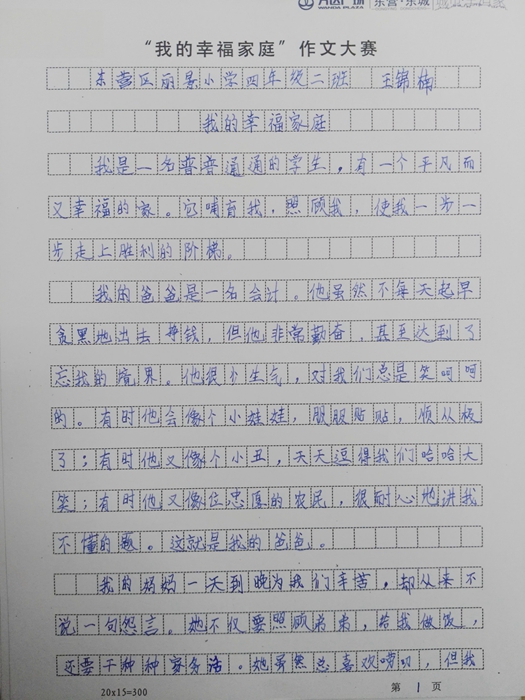 万达广场 WANDA PLAZA 东营·东城
“我的幸福家庭”作文大赛
东营区丽景小学四年级二班 王锦楠
我的幸福家庭
我是一名普普通通的学生，有一个平凡而
又幸福的家。它哺育我，照顾我，使我一步一
步走上胜利的阶梯。
我的爸爸是一名会计。他虽然不每天起早
贪黑地出去挣钱，但他非常勤奋，甚至达到了
忘我的境界。他很少生气，对我们总是笑呵呵
的。有时他会像个小娃娃，服服贴贴，顺从极
了；有时他又像个小丑，天天逗得我们哈哈大
笑；有时他又像位忠厚的农民，很耐心地讲我
不懂的题。这就是我的爸爸。
我的妈妈一天到晚为我们辛苦，却从来不
说一句怨言。她不仅要照顾弟弟，给我做饭，
还要干种种家务活。她虽然总喜欢唠叨，但我
20x15=300 第 1 页